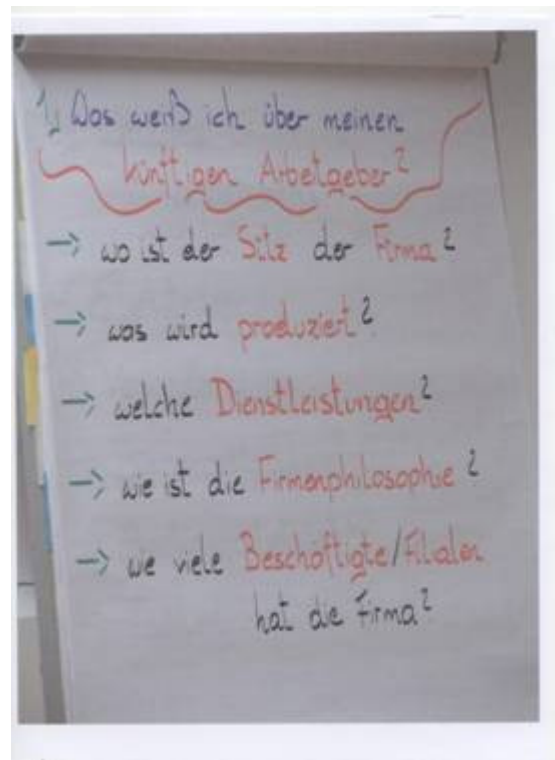 1) Was weiß ich über meinen
künftigen Arbeitgeber?
→ wo ist der Sitz der Firma?
→ was wird produziert?
→ welche Dienstleistungen?
→ wie ist die Firmenphilosophie?
→ wie viele Beschäftigte/Filialen
hat die Firma?